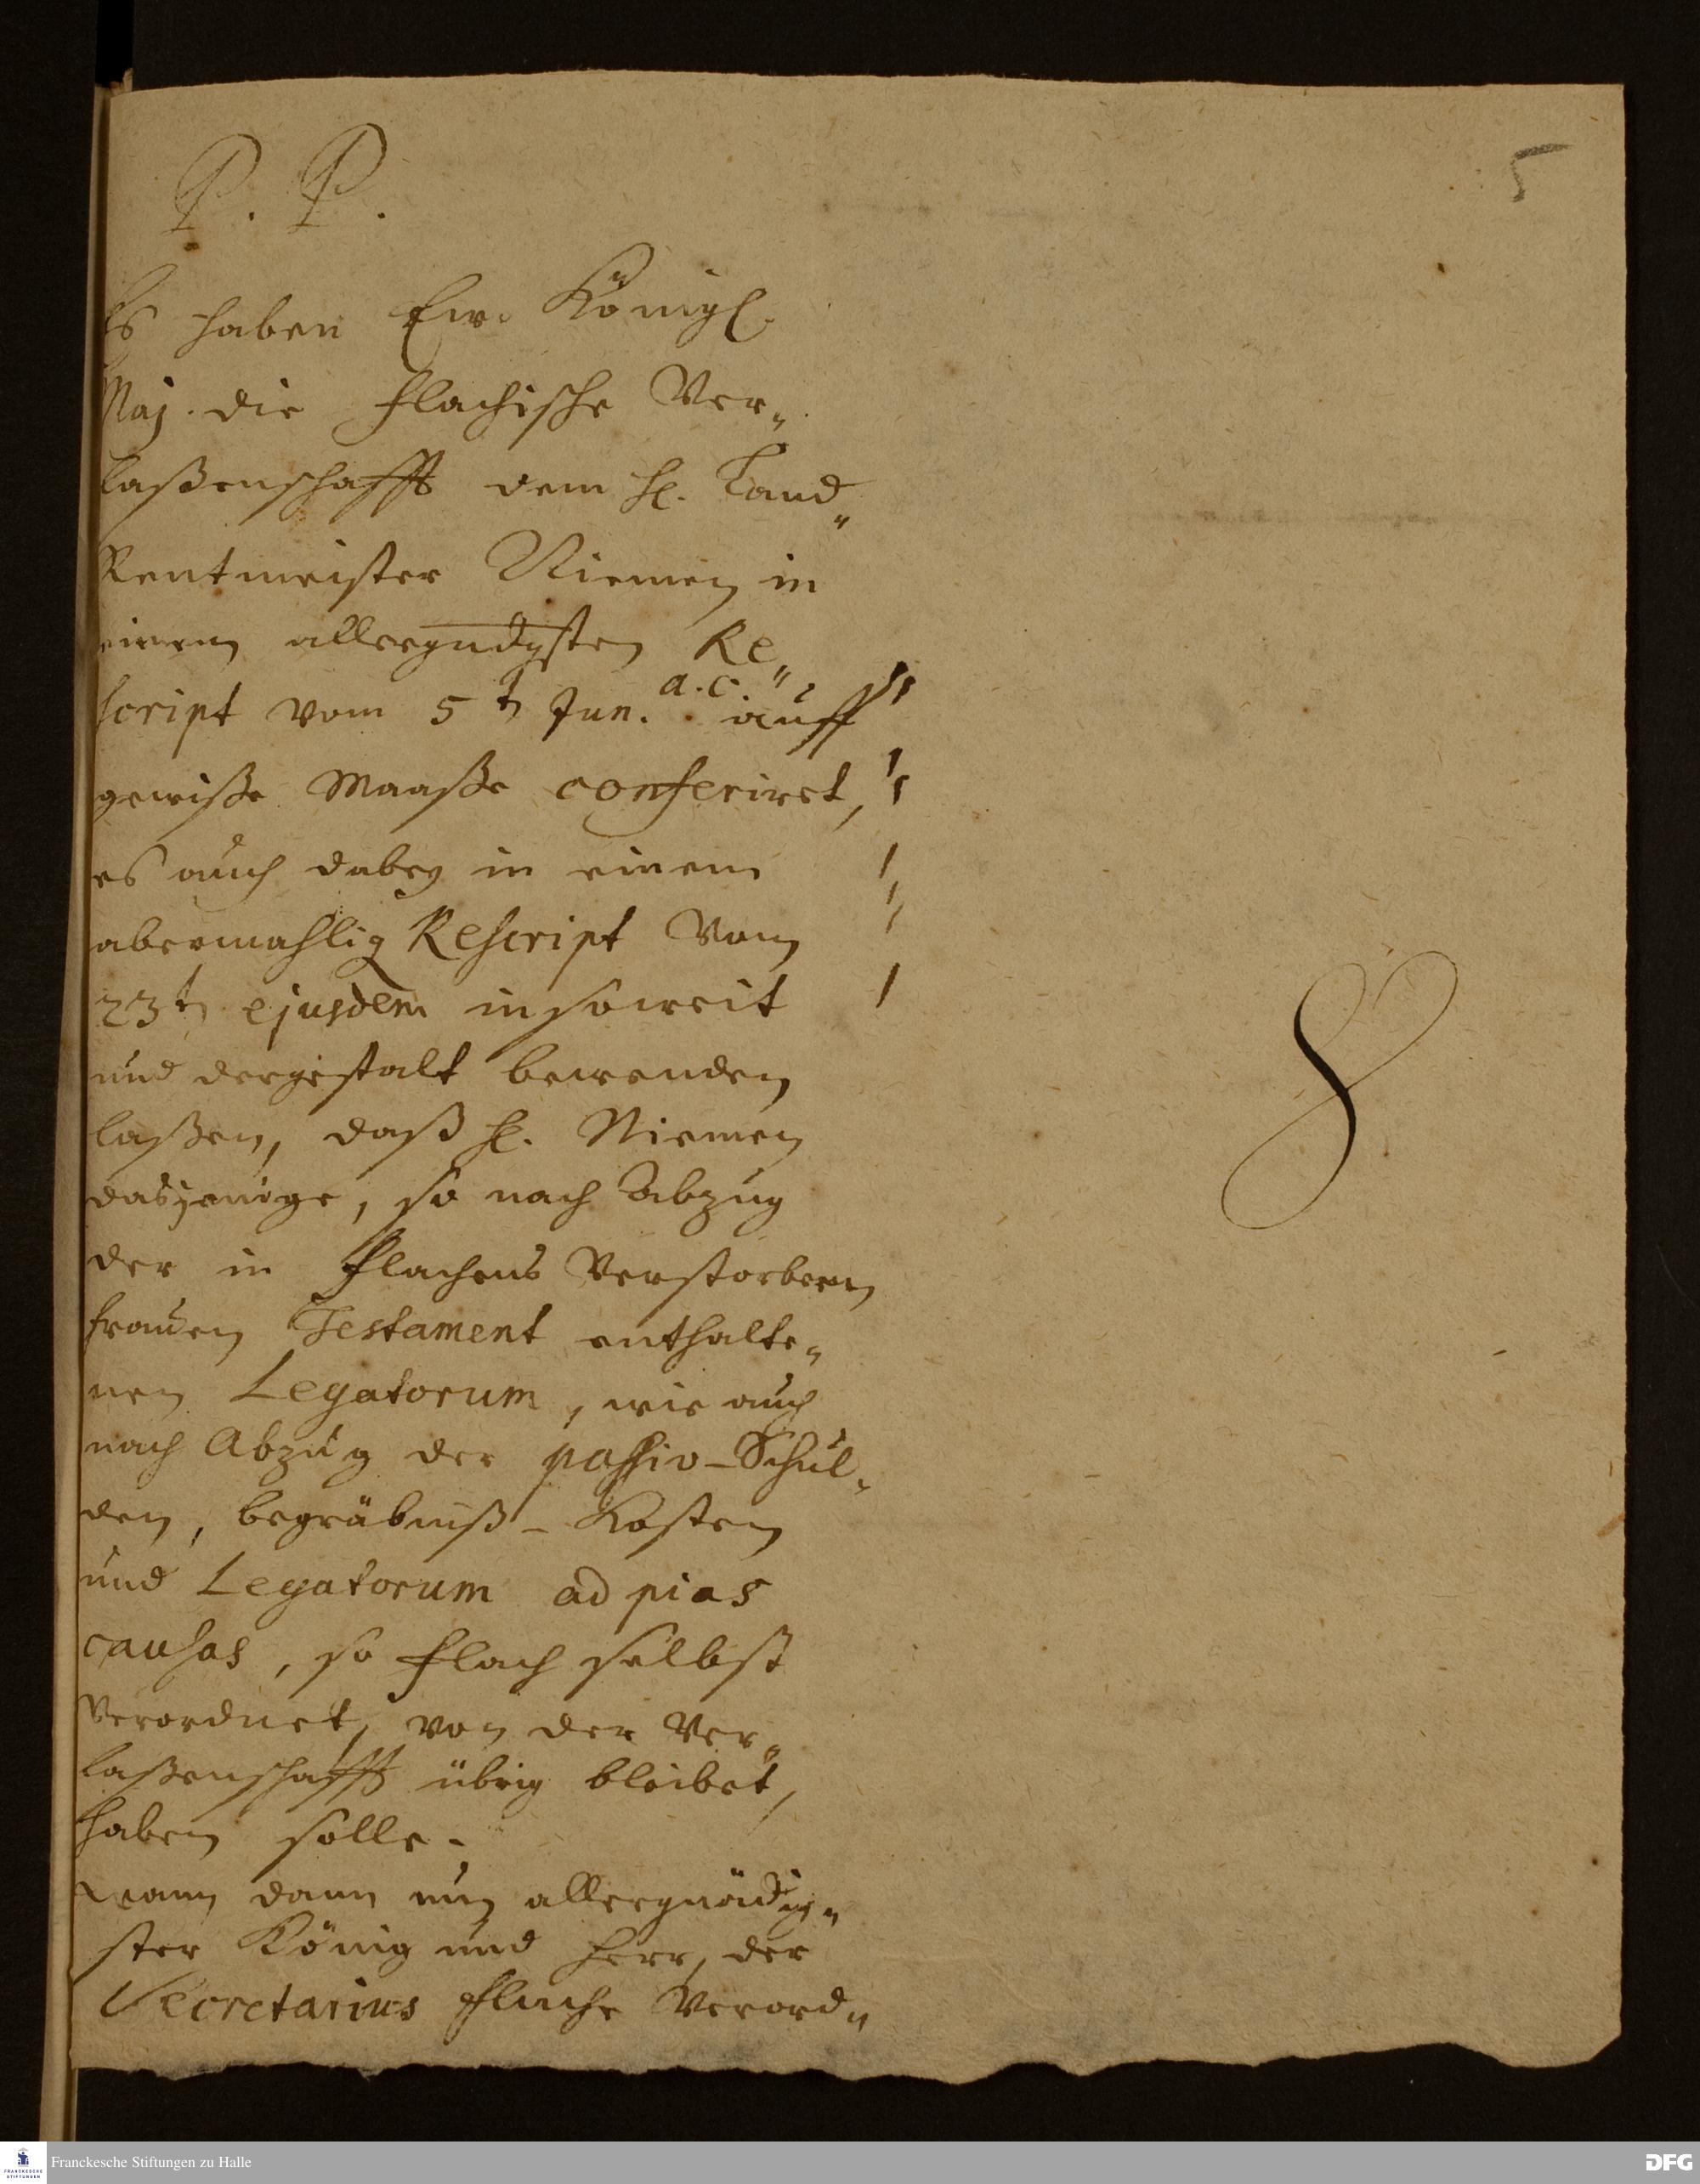 5
P. P.
Es haben Ew. Königl.
Maj. die Flachische Ver„
laßenschafft dem H. Land„
Rentmeister Niemen in
einem allergndgsten Re„
script vom 5tn Jun. a. c. auff
gewiße Maaße conferiret,
es auch dabey in einem
abermahlig Rescript vom
23tn ejusdem in soweit
und dergestalt bewenden
laßen, daß H. Niemen
dasjenige, so nach Abzug
der in Flachens verstorbenen
Frauen Testament enthalte„
nen Legatorum, wie auch
nach Abzug der passiv-Schul„
den, begräbniß-Kosten
und Legatorum ad pias
causas, so Flach selbst
verordnet, von der Ver„
laßenschafft übrig bleibet,
haben solle.
Wann dann nun allergnädig„
ster König und Herr, der
Secretarius Flache verord„
Franckesche Stiftungen zu Halle
DFG